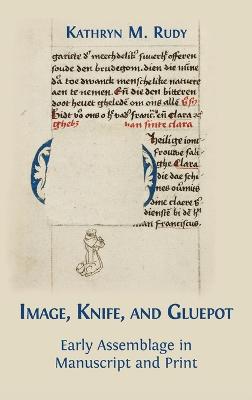 KATHRYN M. RUDY
garicte des meechdelikē swerts offeren
soude den brudegom. dien die mine
daer toe dwanck menschelike natuere
aen te nemen. En die den bitteren
doot heuet gheleden om ons alle
Bidt voer ons o h vad franc en Clara
ghebz van sinte clara
Heilige ion
frouwe sali
ghe Clara
die dae schi
nes oumits
dine claere v
dienstē bi dē h
man Franciscus.
IMAGE, KNIFE, AND GLUEPOT
Early Assemblage in
Manuscript and Print